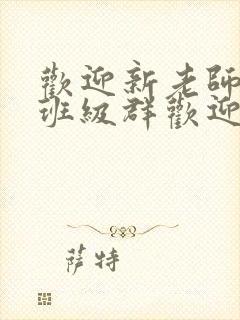 歡迎新老師
班級群歡迎
萨特